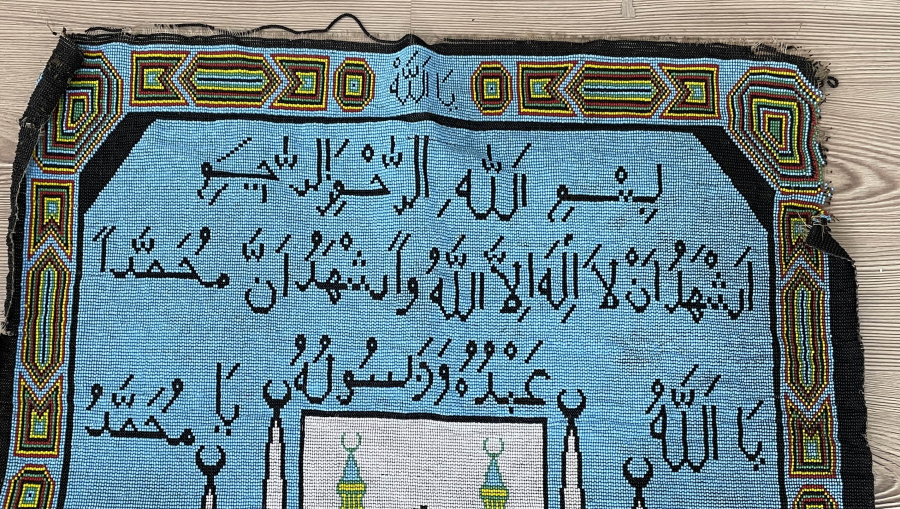 يَا اَللّٰهْ
بِسْمِ اَللّٰهِ الرَّحْمٰنِ الرَّحِيمِ
اَشْهَدُ اَنْ لَا اِلٰهَ اِلَّا اللّٰهُ وَاَشْهَدُ اَنَّ مُحَمَّداً
عَبْدُهُ وَرَسُولُهُ
يَا اَللّٰهُ
يَا مُحَمَّدُ